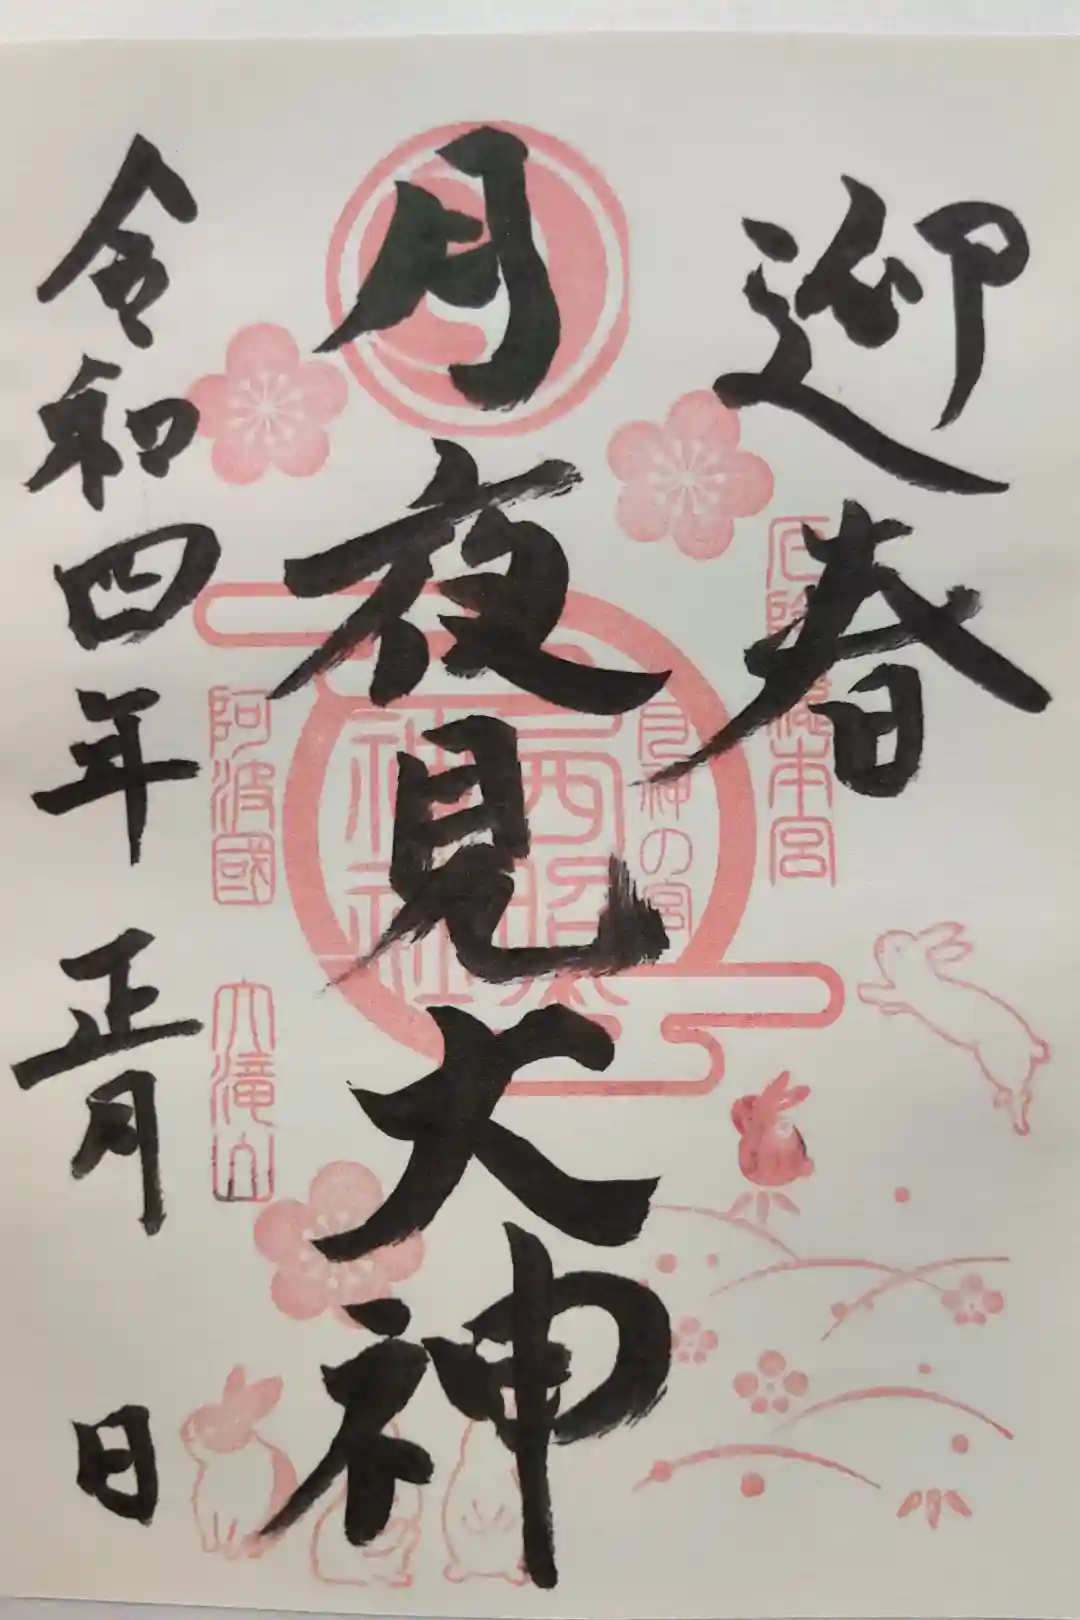 迎春
月夜見大神
令和四年 正月 日
厄除總本宮
月神の宮
西照神社
阿波國
大滝山